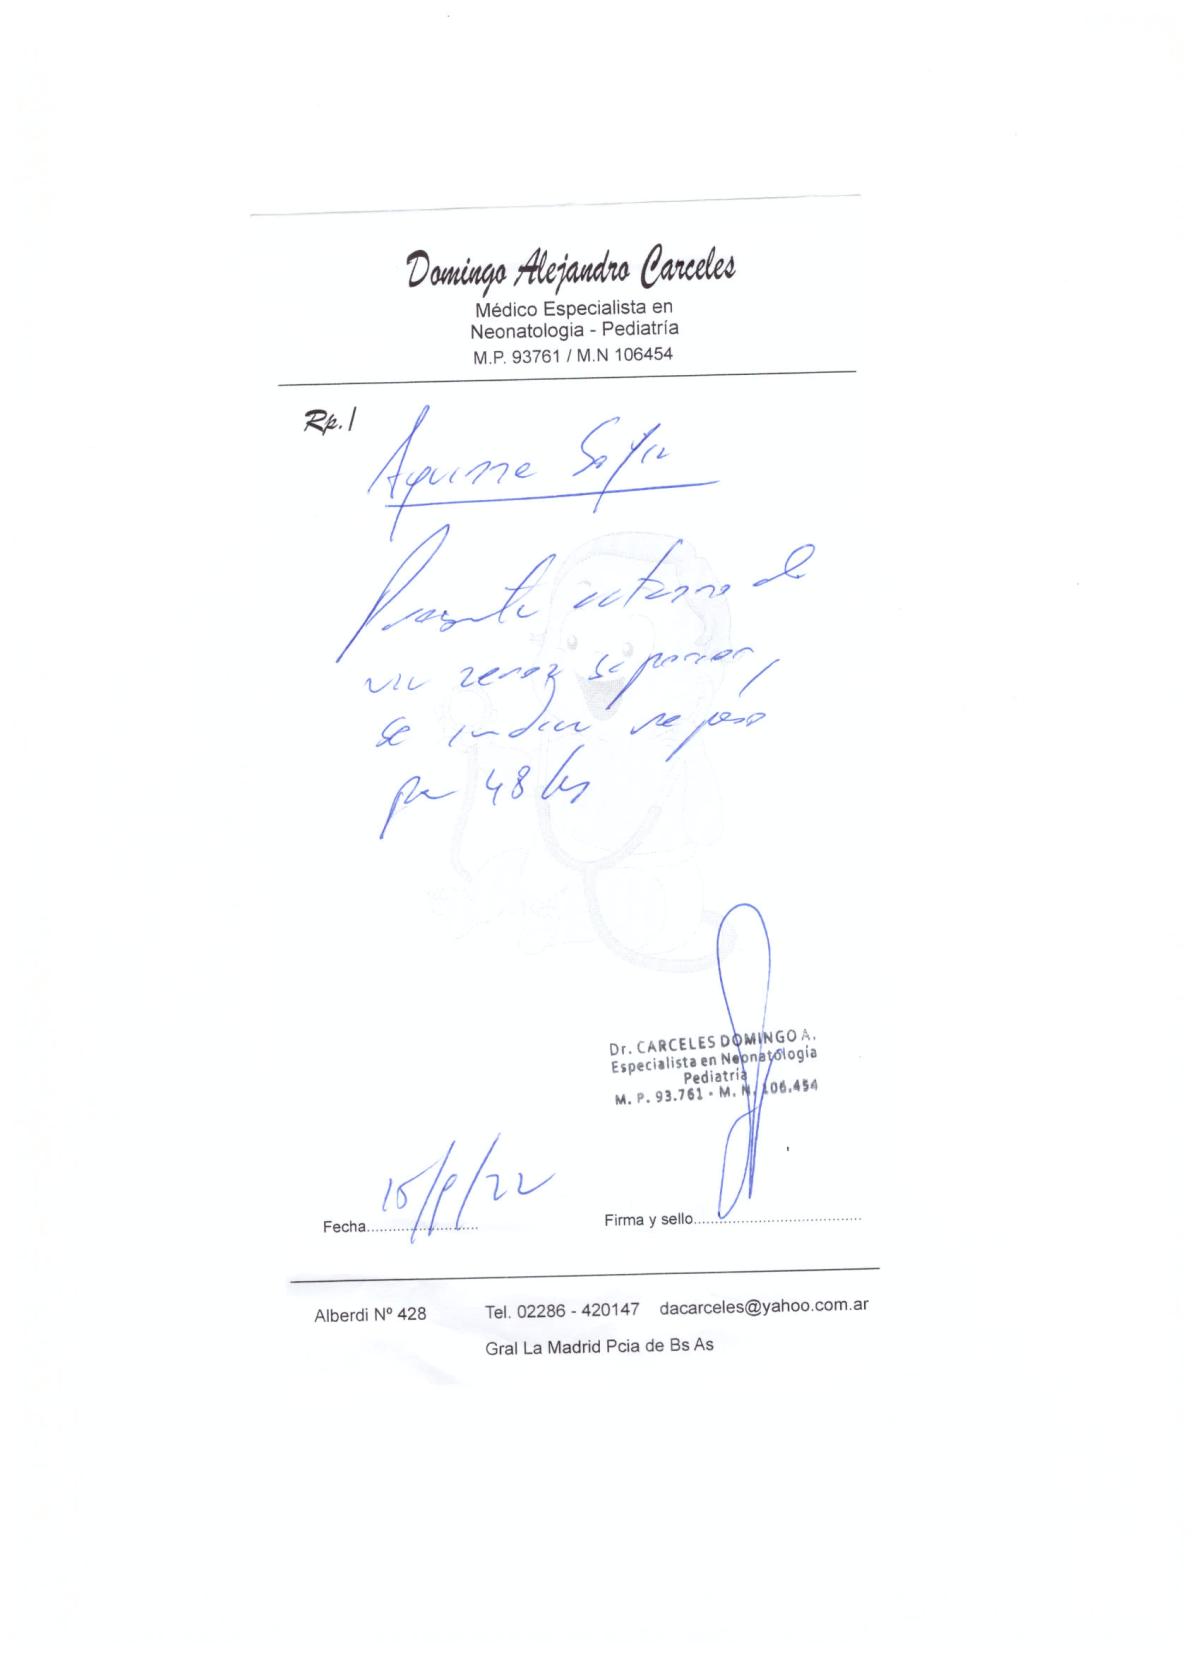 Domingo Alejandro Carceles
Médico Especialista en
Neonatologia - Pediatría
M.P. 93761 / M.N 106454
Rp./
Aguirre Sofia
Presenta catarro de
via aerea superior,
se indica reposo
por 48 hs
Dr. CARCELES DOMINGO A.
Especialista en Neonatología
Pediatría
M. P. 93.761 - M. N. 106.454
15/ /22
Fecha
Firma y sello
Alberdi Nº 428 Tel. 02286 - 420147 dacarceles@yahoo.com.ar
Gral La Madrid Pcia de Bs As